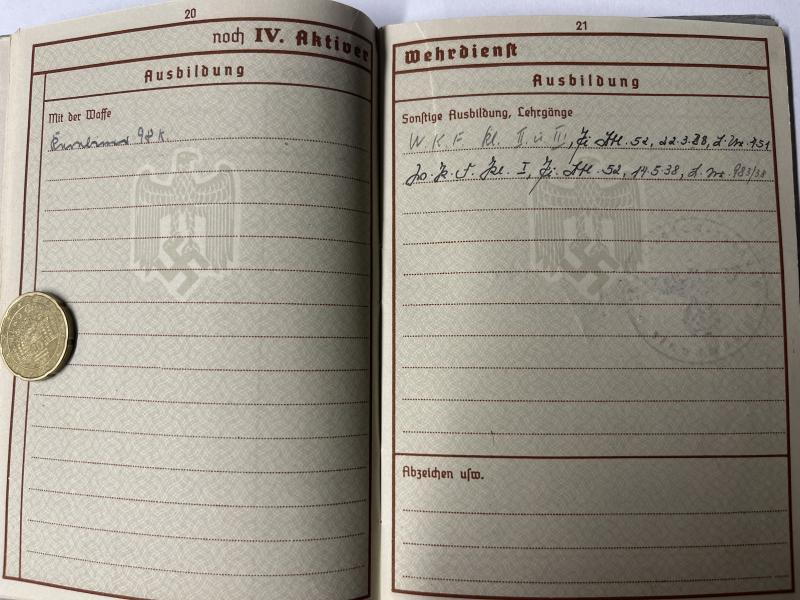 20
noch IV. Aktiver
Ausbildung
Mit der Waffe
98 k.
21
Wehrdienst
Ausbildung
Sonstige Ausbildung, Lehrgänge
W. K. F. Kl. II u III, Fz. Stl. 52, 22.3.38, L. Nr. 451
Kl. I, Fz. Stl. 52, 14.5.38, L. Nr. 983/38
Abzeichen usw.